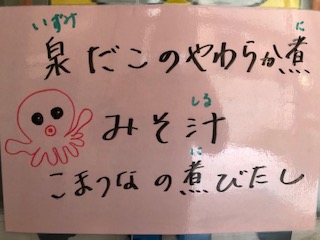 いずみ に
泉だこのやわらか煮
しる
みそ汁
に
こまつなの煮びたし